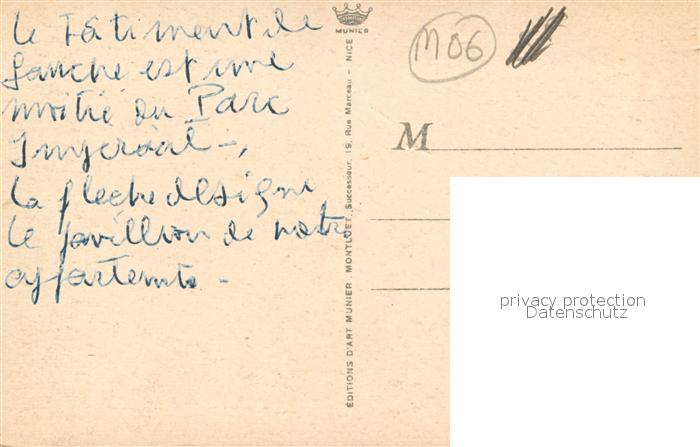 Le Bâtiment de
gauche est une
moitié du Parc
Imperial -,
la fleche designe
le pavillion de notre
appartemts -
MUNIER
ÉDITIONS D'ART MUNIER. MONTLUET, Successeur, 19, Rue Marceau — NICE
M06
M
privacy protection
Datenschutz